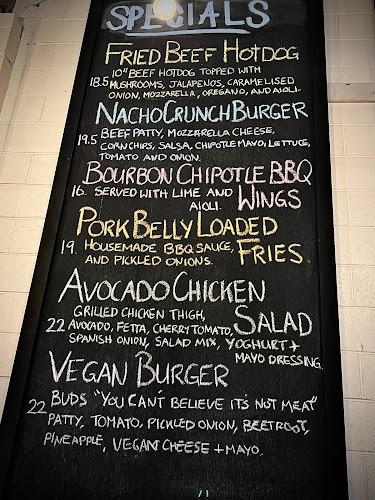 SPECIALS
FRIED BEEF HOTDOG
10" BEEF HOTDOG TOPPED WITH
18.5 MUSHROOMS, JALAPENOS, CARAMELISED
ONION, MOZZARELLA, OREGANO, AND AIOLI.
NACHO CRUNCH BURGER
19.5 BEEF PATTY, MOZZARELLA CHEESE,
CORN CHIPS, SALSA, CHIPOTLE MAYO, LETTUCE,
TOMATO AND ONION.
BOURBON CHIPOTLE BBQ
16. SERVED WITH LIME AND WINGS
AIOLI.
PORK BELLY LOADED
19. HOUSEMADE BBQ SAUCE, FRIES
AND PICKLED ONIONS.
AVOCADO CHICKEN
GRILLED CHICKEN THIGH, SALAD
22 AVOCADO, FETTA, CHERRY TOMATO,
SPANISH ONION, SALAD MIX, YOGHURT +
MAYO DRESSING.
VEGAN BURGER
22 BUDS "YOU CANT BELIEVE ITS NOT MEAT"
PATTY, TOMATO, PICKLED ONION, BEETROOT,
PINEAPPLE, VEGAN CHEESE + MAYO.